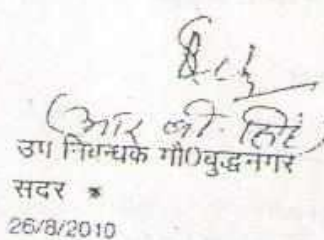 (आर बी. सिंह)
उप निबन्धक गौ0बुद्धनगर
सदर *
26/8/2010